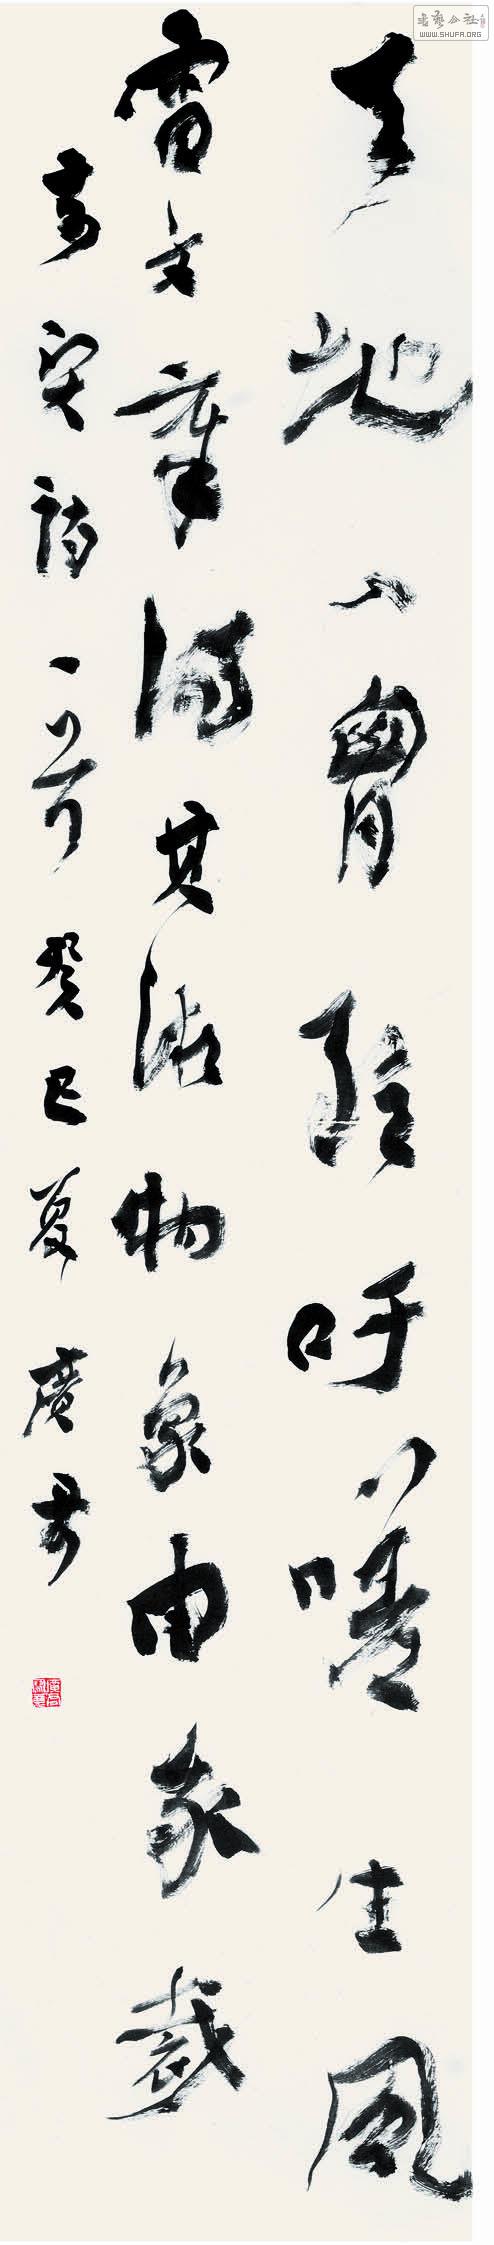 书艺公社
WWW.SHUFA.ORG
天地入胷臆吁嗟生風
雷文章得其微物象由我裁
詩一首癸巳夏廣